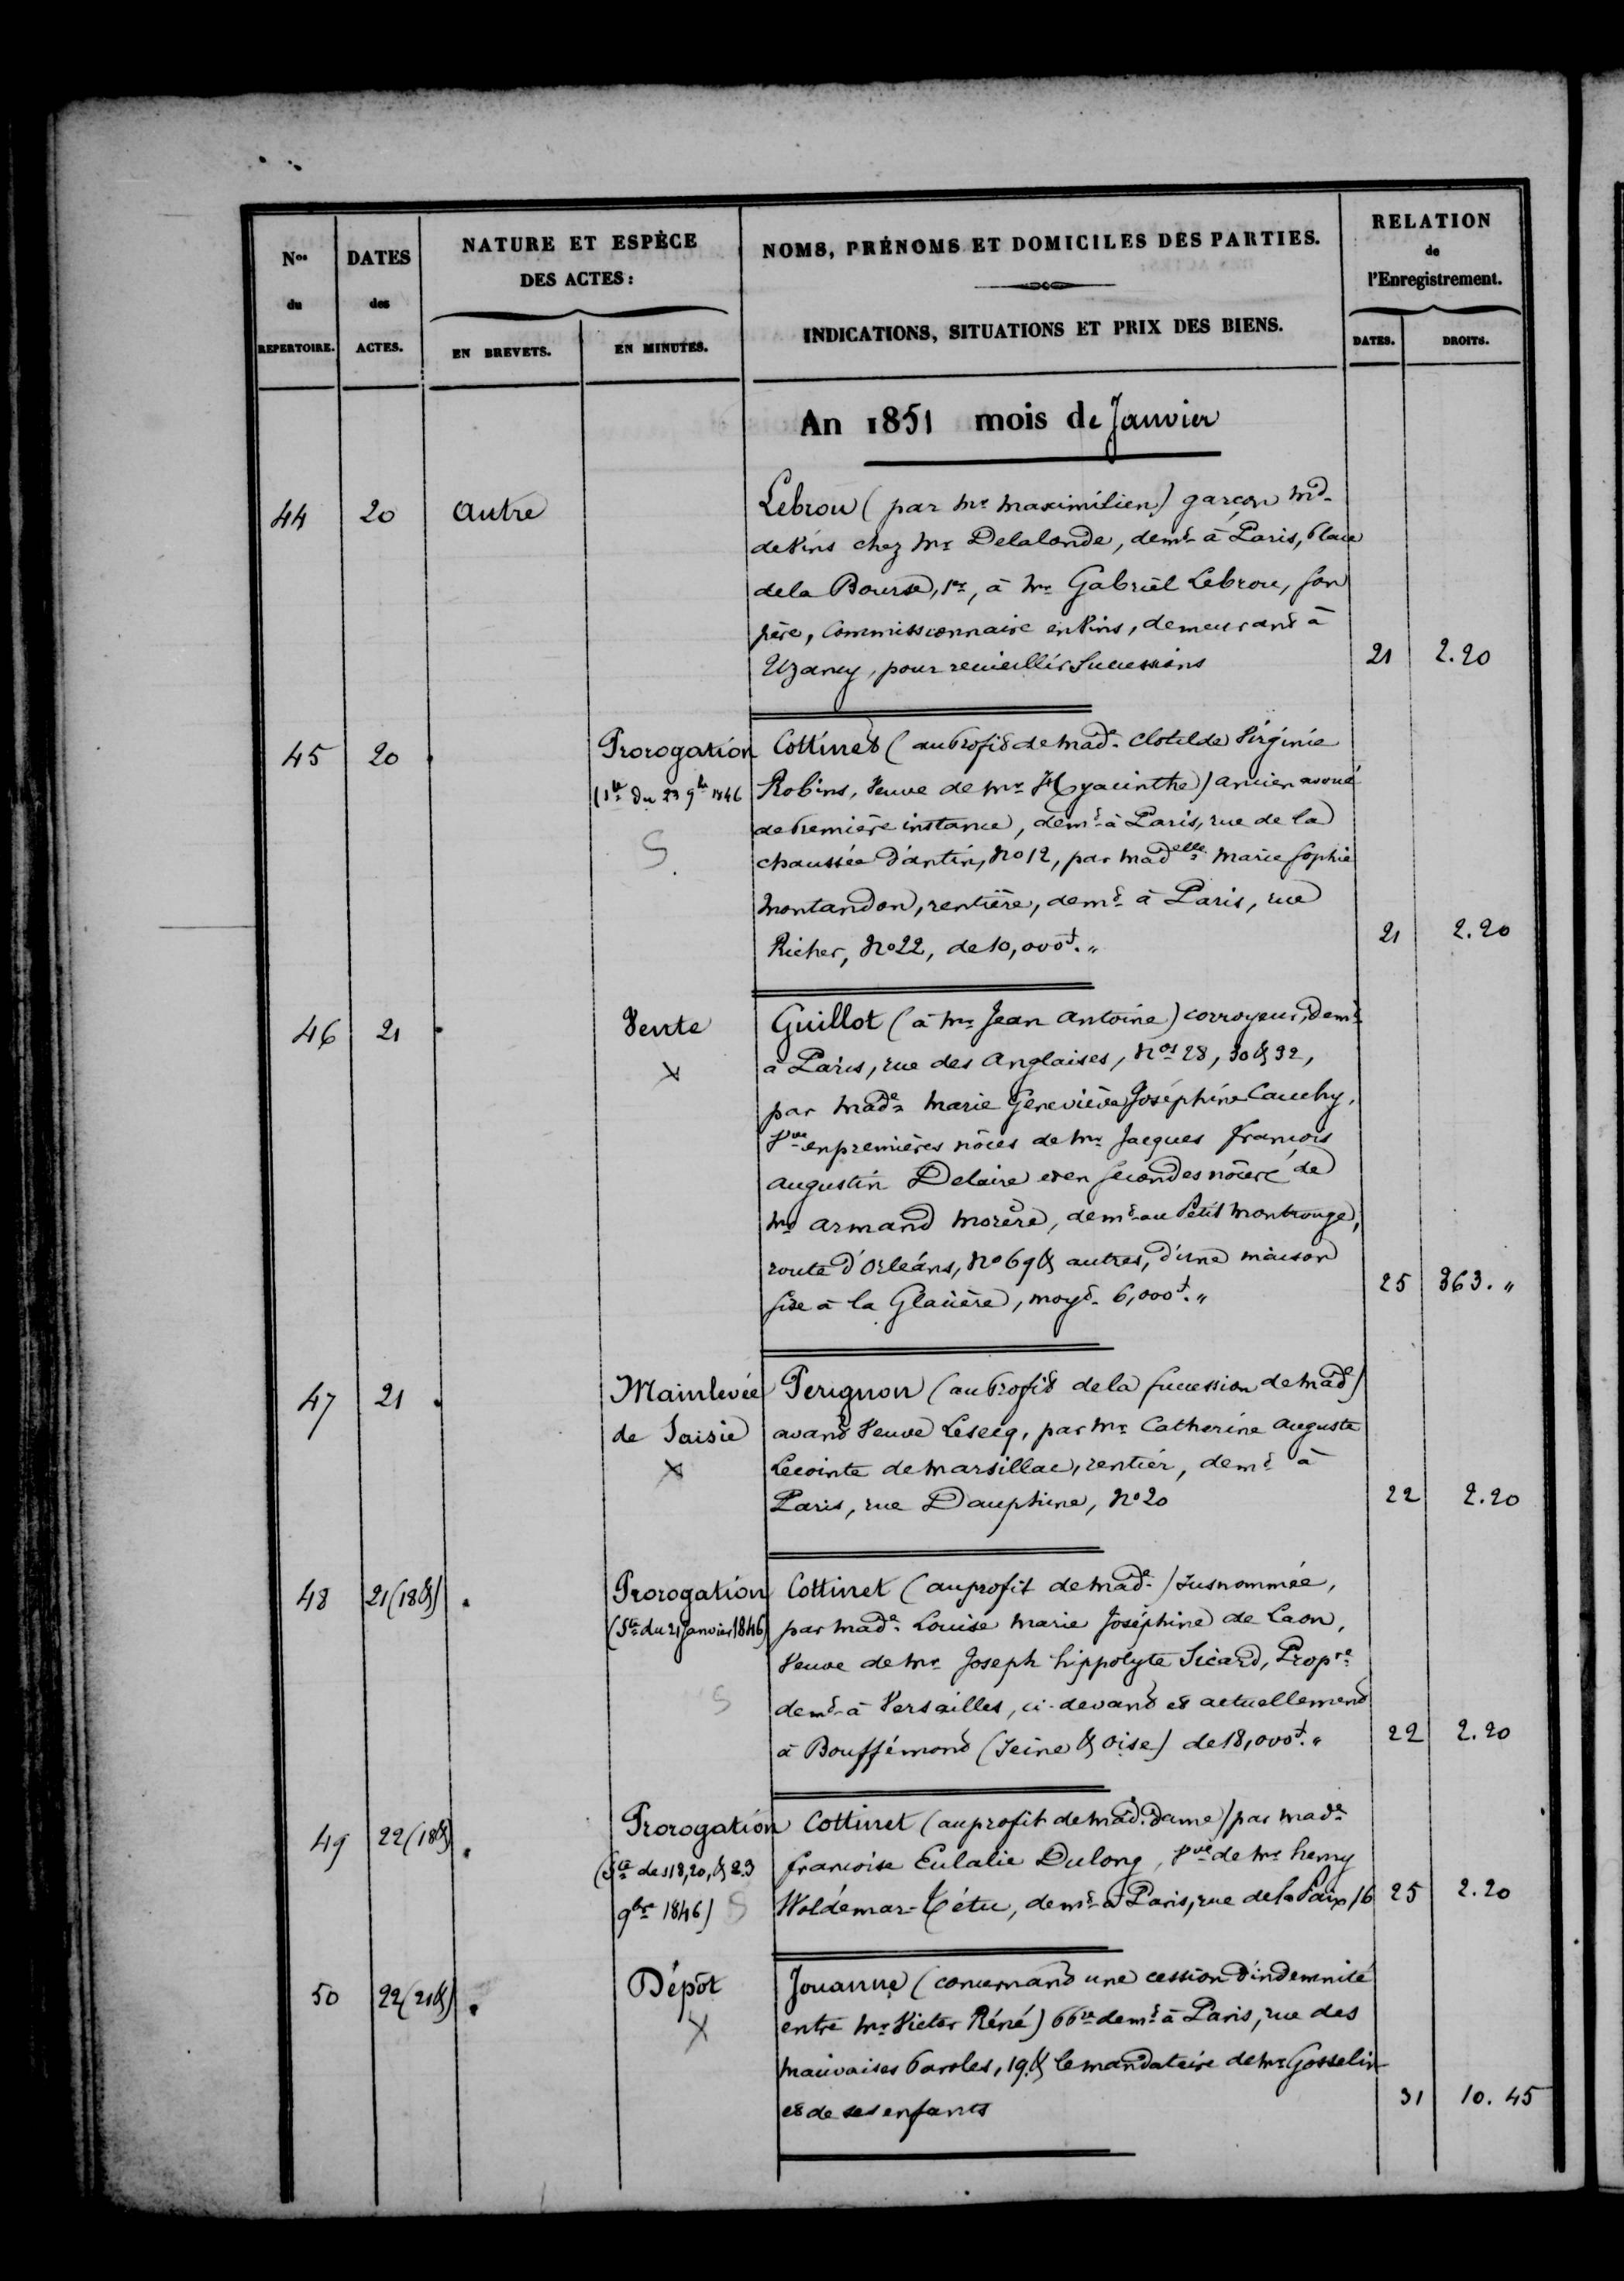 Nos du REPERTOIRE.
DATES des ACTES.
NATURE ET ESPÈCE
DES ACTES:
EN BREVETS.
EN MINUTES.
NOMS, PRÉNOMS ET DOMICILES DES PARTIES.
INDICATIONS, SITUATIONS ET PRIX DES BIENS.
RELATION
de
l'Enregistrement.
DATES.
DROITS.
An 1851 mois de Janvier
44 20 autre Lebrou (par Mr Maximilien) garçon Md
de vins chez Mr Delalande, demt à Paris, Place
de la Bourse, à Mr Gabriël Lebrou, son
père, Commissionnaire en vins, demeurant à
Uzancy, pour recueillir Successions 21 2.20
45 20 Prorogation Cottinet (au profit de Made Clotilde Virginie
(Ste du 23 9bre 1846 Robins, Veuve de Mr Hyacinthe) ancien avoué
de première instance, demt à Paris, rue de la
S chaussée d'antin, No 12, par Madelle Marie Sophie
Montandon, rentière, demt à Paris, rue
Richer, No 22, de 10,000f. " 21 2.20
46 21 Vente Guillot (à Mr Jean Antoine) corroyeur, demt
à Paris, rue des Anglaises, Nos 28, 30 & 32,
par Made Marie Geneviève Joséphine Cauchy,
Vve en premières nôces de Mr Jacques François
Augustin Delaire et en secondes nôces de
Mr Armand Morère, demt au Petit Montrouge,
route d'Orléans, No 69 & autres, d'une maison
sise à la Glacière, moyt 6,000f. " 25 363. "
47 21 Mainlevée Perignon (au profit de la succession de Made)
de Saisie avant Veuve Lesecq, par Mr Catherine Auguste
Lecointe de Marsillac, rentier, demt à
Paris, rue Dauphine, No 20 22 2.20
48 21 (18 &) Prorogation Cottinet (au profit de Made) susnommée,
(Ste du 21 Janvier 1846) par Made Louise Marie Joséphine de Laon,
Veuve de Mr Joseph hippolyte Sicard, Propre
S demt à Versailles, ci-devant et actuellement
à Bouffémont (Seine & Oise) de 18,000f. " 22 2.20
49 22 (18 &) Prorogation Cottinet (au profit de mad. dame) par Made
(Ste des 18, 20, & 23 françoise Eulalie Dulong, Vve de Mr henry
9bre 1846) S Woldémar-Têtu, demt à Paris, rue de la Paix 16 25 2.20
50 22 (21 &) Dépôt Jouanne (concernant une cession d'indemnité
entre Mr Victor Réné) demt à Paris, rue des
Mauvaises Paroles, 19, & le mandataire de Mr Gosselin
et de ses enfants 31 10.45